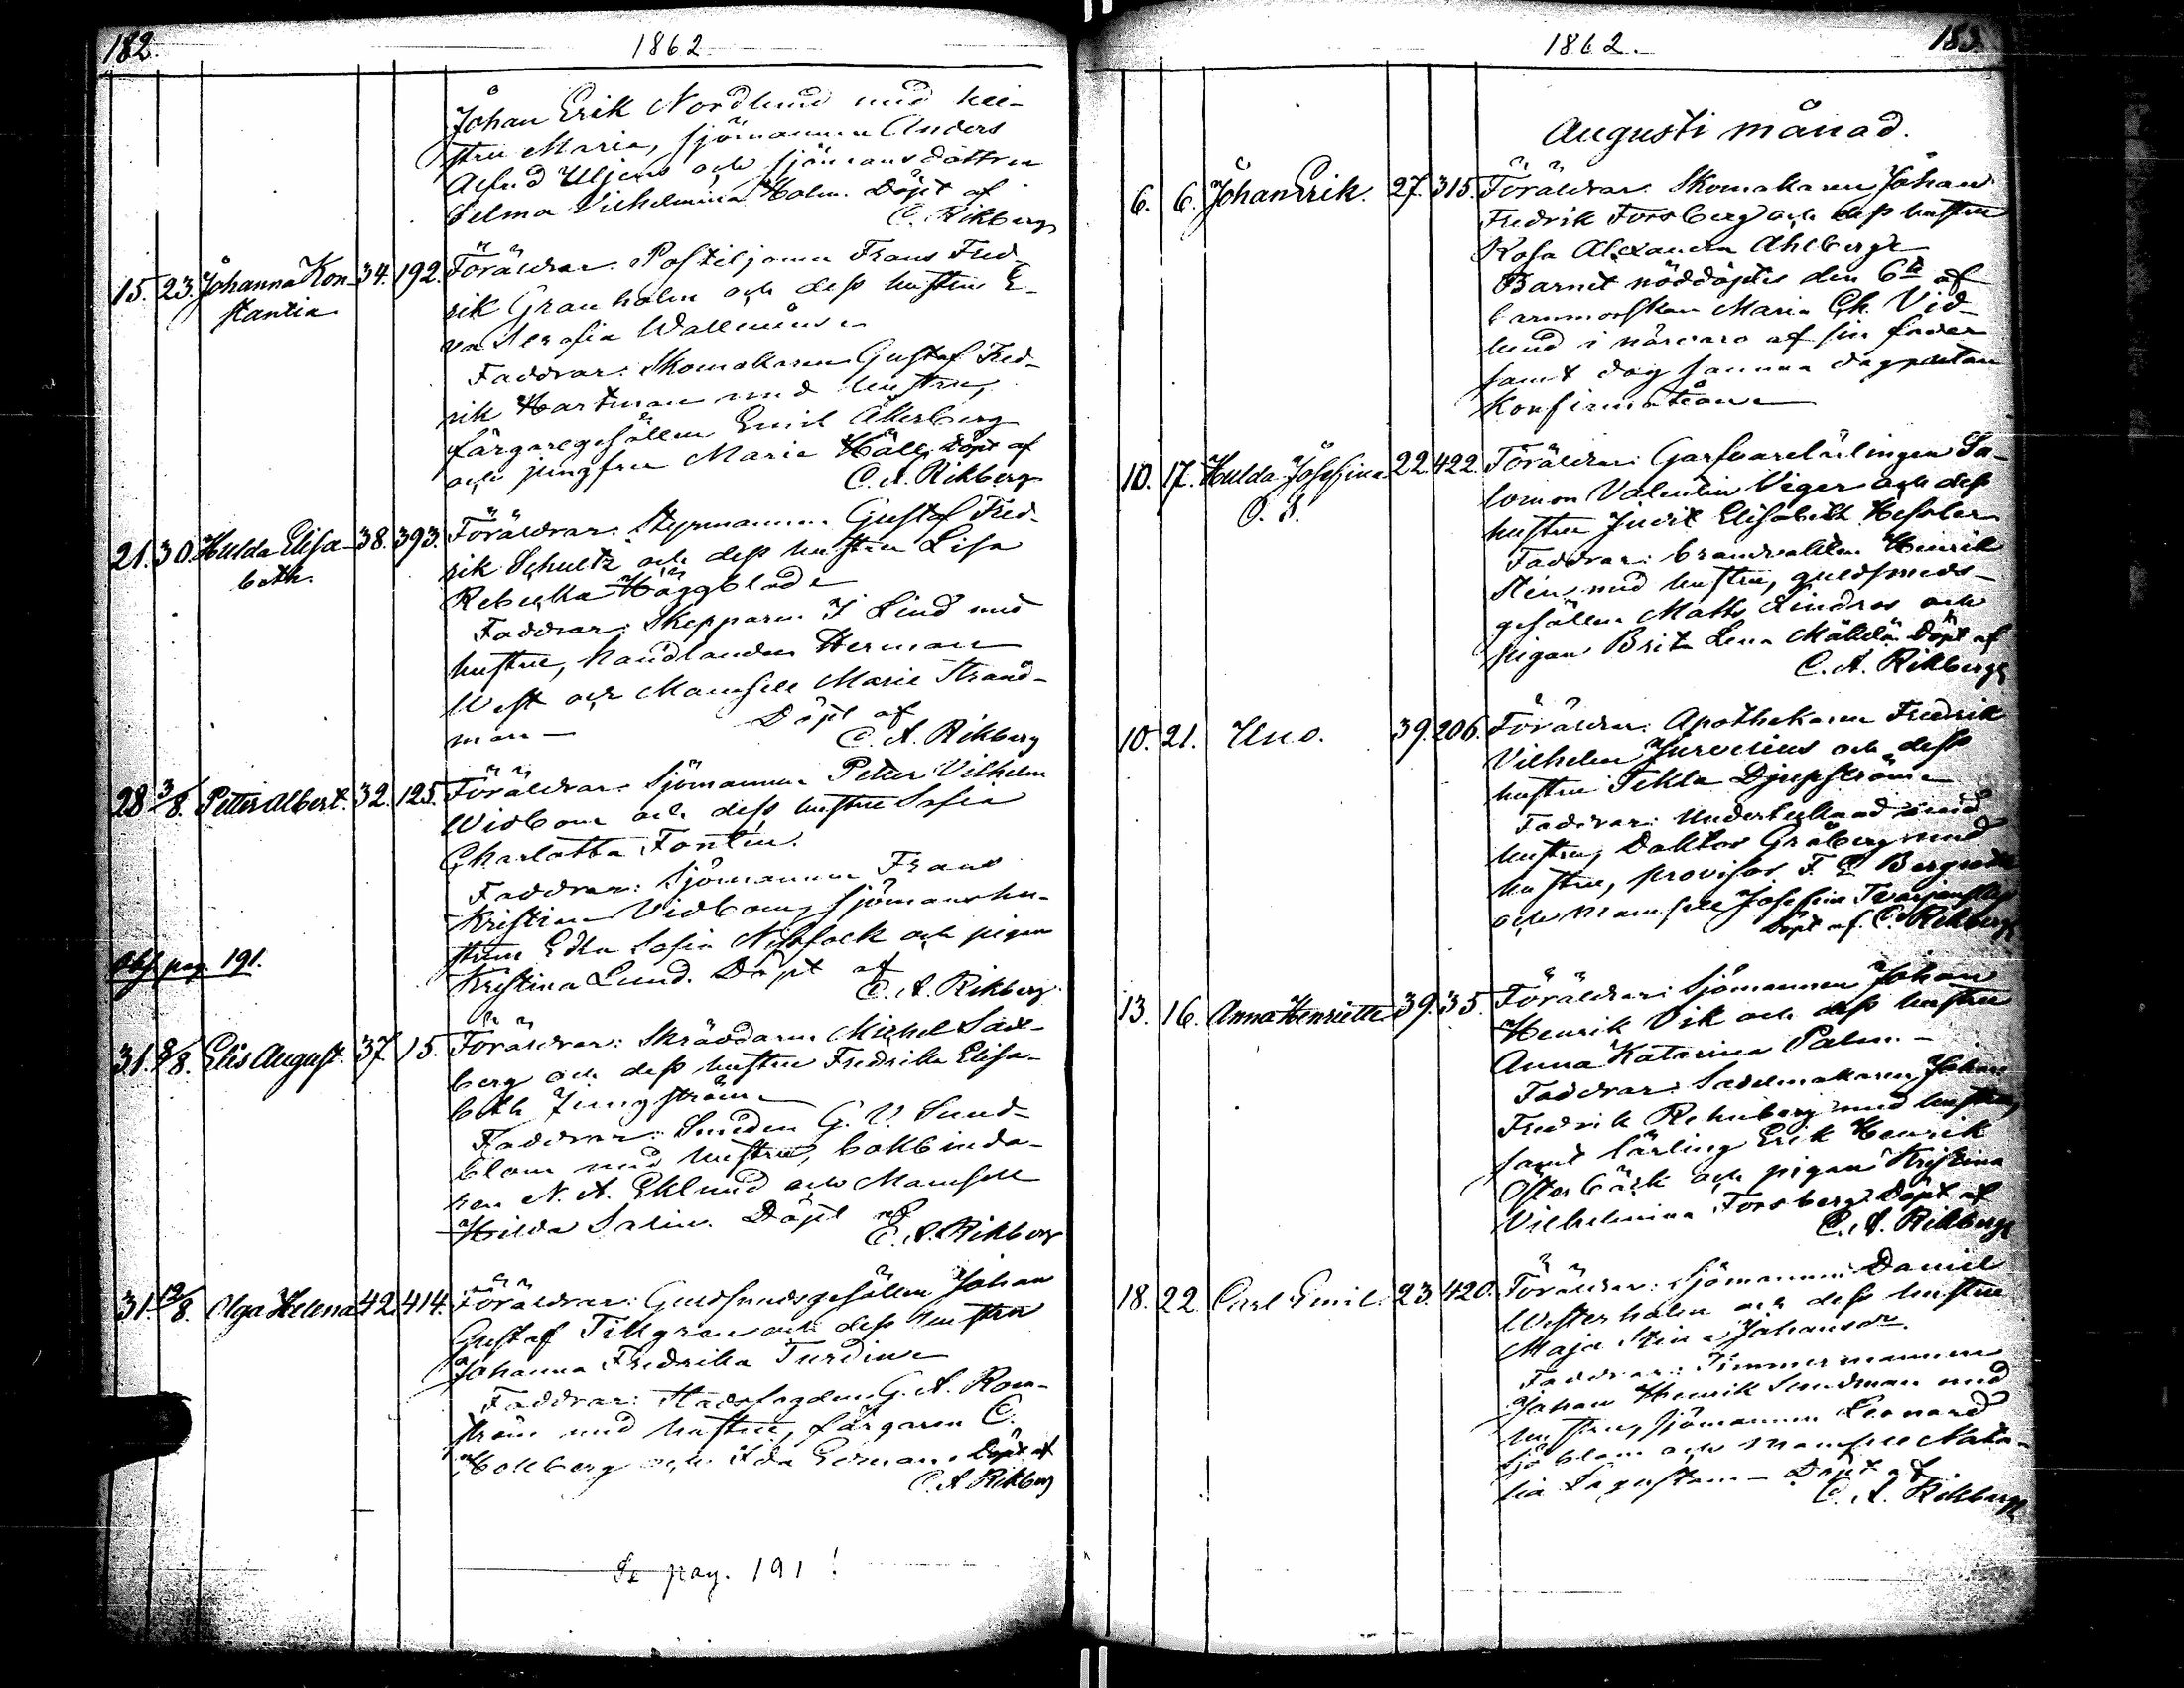 182.
1862
Johan Erik Nordlund med hu-
stru Maria, sjömannen Anders
Uljens och sjömansdottren
Selma Vilhelmina Holm. Döpt af
C. Rikberg
15. 23. Johanna Kon- 34. 192. Föräldrar: Postiljonen Frans Fred-
stantia
rik Granholm och dess hustru E-
va Serafia
Faddrar: Skomakaren Gustaf Fred-
rik Hartman med hustru,
färgaregesällen Emil Åkerberg
och jungfru Maria Häll. Döpt af
C. A. Rikberg
21. 30. Hulda Elisa- 38. 393. Föräldrar: Styrmannen Gustaf Fred-
beth.
rik Schultz och dess hustru Lisa
Rebecka Häggblad
Faddrar: Skepparen J Lind med
hustru, handlanden Herman
West och Mamsell Marie Strand-
man — Döpt af
C. A. Rikberg
28 3/8. Petter Albert. 32. 125. Föräldrar: Sjömannen Petter Vilhelm
Widbom och dess hustru Sofia
Charlotta Fontin.
Faddrar: Sjömannen Frans
Kristian Vidbom, sjömanshu-
strun Edla Sofia och pigan
Kristina Lund. Döpt af
C. A. Rikberg.
Obs. pag. 191.
31. 8/8. Elis August. 37 15. Föräldrar: Skräddaren Michel Sad-
berg och dess hustru Fredrika Elisa-
beth Ljungström
Faddrar: Smeden G. V. Sund-
blom med hustru, bokbinda-
ren N. A. Eklund och Mamsell
Hilda Salin. Döpt af
C. A. Rikberg
31. 12/8. Olga Helena 42. 414. Föräldrar: Guldsmedsgesällen Johan
Gustaf Tillgren och dess hustru
Johanna Fredrika Turdin
Faddrar: Stadsfogden G. A. Rom-
ström med hustru, färgaren C.
Hollberg och Ida Edman. Döpt af
C. A Rikberg
Se pag. 191!
1862.
183.
Augusti månad.
6. 6. Johan Erik. 27. 315. Föräldrar: Skomakaren Johan
Fredrik Forsberg och dess hustru
Rosa Alexandra Ahlberg
Barnet nöddöptes den 6te af
barnmorskan Maria Ch. Vid-
lund i närvaro af sin fader
samt dog samma dag utan
Konfirmation
10. 17. Hulda Josefina 22 422. Föräldrar: Garfvarelärlingen Sa-
O. S.
lomon Valentin Viger och dess
hustru Judit Elisabeth Hessler
Faddrar: brandvakten Henrik
Sten med hustru, guldsmeds-
gesällen Matts Lindros och
pigan Brita Lena Mäkelä. Döpt af
C. A. Rikberg
10. 21. Uno. 39. 206. Föräldrar: Apothekaren Fredrik
Vilhelm Jurvelius och dess
hustru Tekla Djupström
Faddrar: med
hustru, Doktor Gröberg med
hustru, provisor F. E Bergroth
och Mamsell Josefin
Döpt af C. Rikberg
13. 16. Anna Henriette 39. 35. Föräldrar: Sjömannen Johan
Henrik Vik och dess hustru
Anna Katarina Palm. -
Faddrar: Sadelmakaren Johan
Fredrik Rehnberg med hustru,
samt lärling Erik Henrik
Österbäck och pigan Kristina
Vilhelmina Forsberg. Döpt af
C. A. Rikberg
18. 22. Carl Emil. 23. 420. Föräldrar: Sjömannen Daniel
Westerholm och dess hustru
Maja Stina Johansdr.
Faddrar: Timmermannen
Johan Henrik Sundman med
hustru, sjömannen Leonard
Sjöblom och Mamsell Nata-
lia — Döpt af
C. A. Rikberg